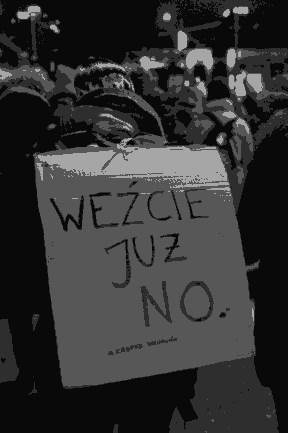 WEŹCIE
JUŻ
NO.